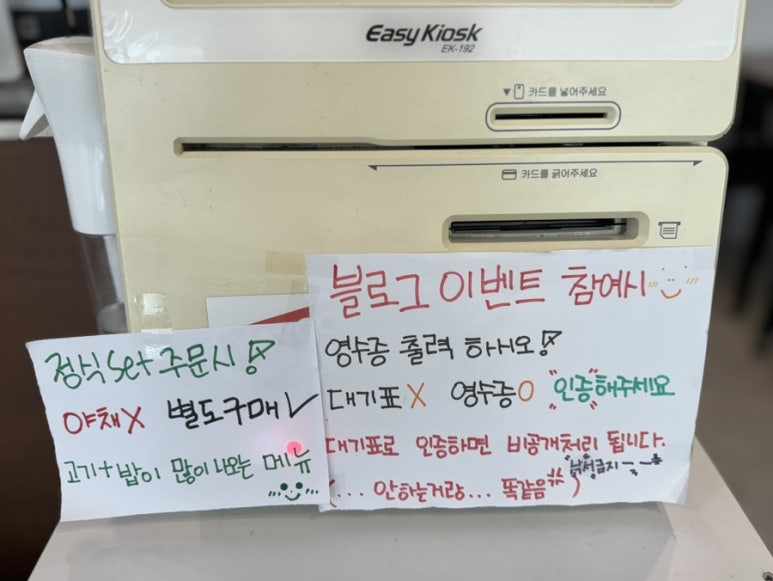 Easy Kiosk
EK-192
▼ 카드를 넣어주세요
카드를 긁어주세요
블로그 이벤트 참여시
영수증 출력 하시오!
대기표 X 영수증 O "인증"해주세요
대기표로 인증하면 비공개처리 됩니다.
(... 안하는거랑... 똑같음 )
낚서금지
정식 Set 주문시!
야채 X 별도구매 ✓
고기+밥이 많이 나오는 메뉴